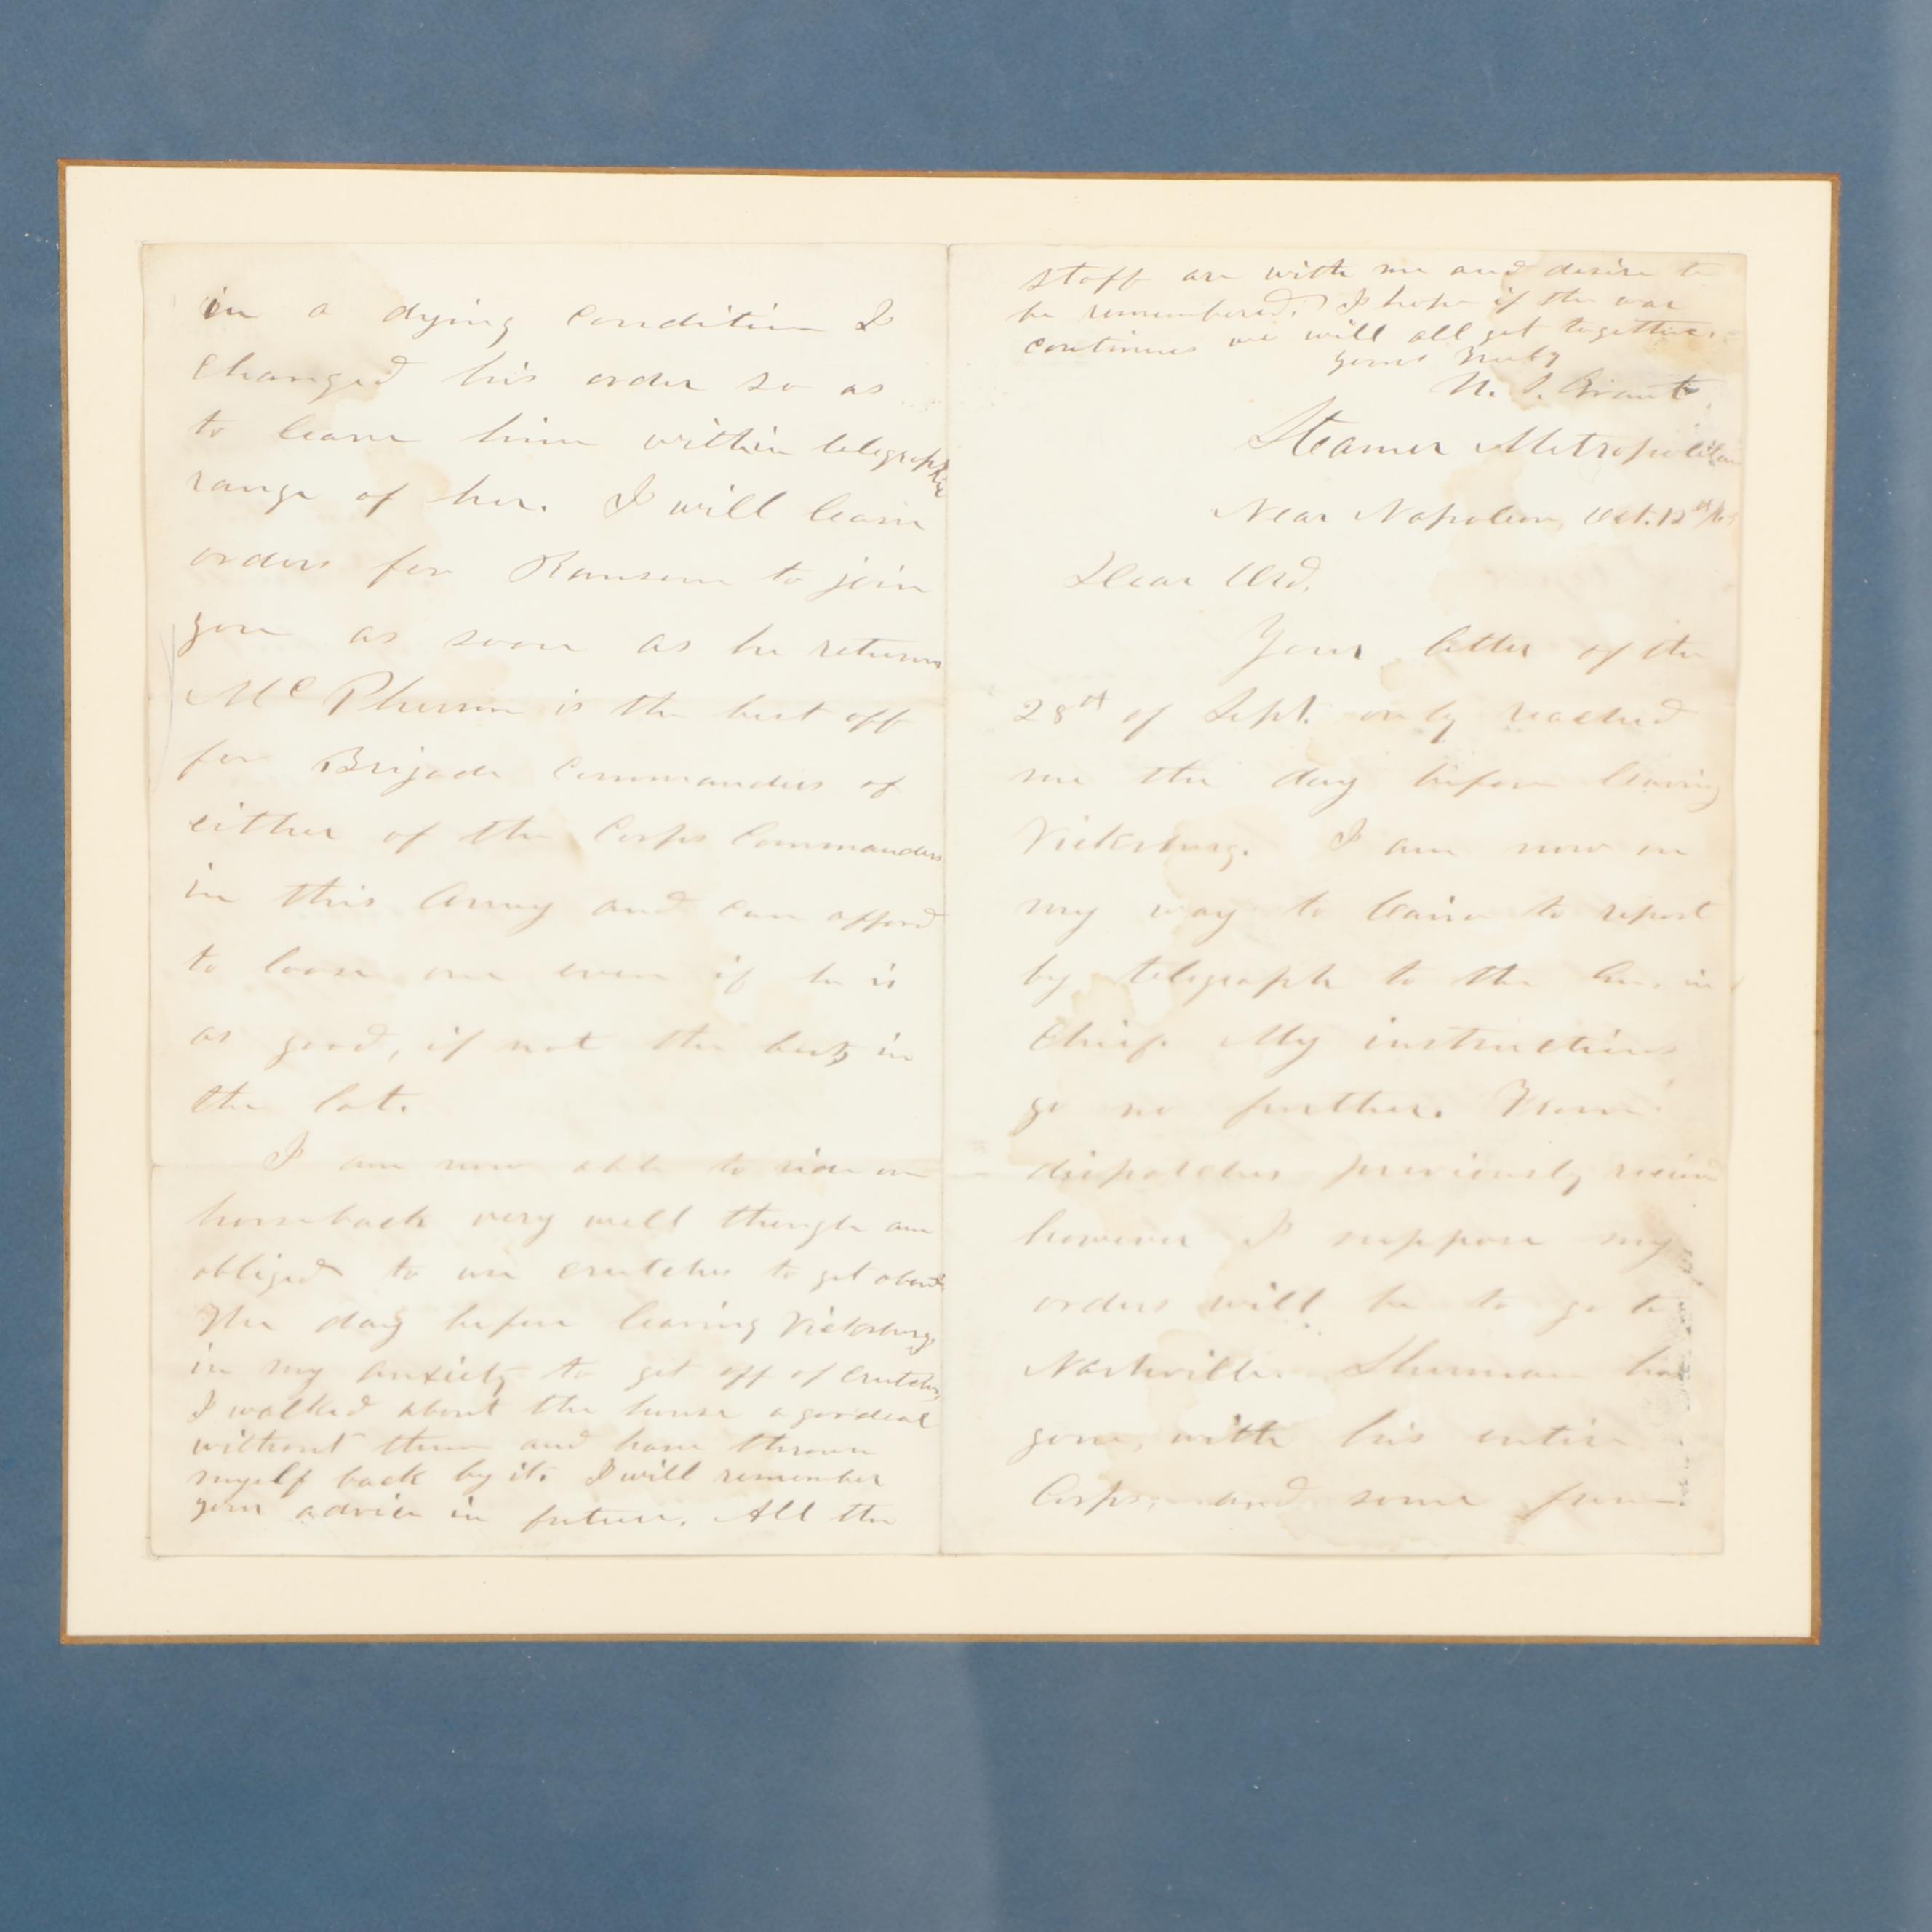 in a dying condition I
changed his order so as
to leave him within telegraphic
range of her. I will leave
orders for Ransom to join
you as soon as he returns
McPherson is the best off
for Brigade Commanders of
either of the Corps Commanders
in this Army and can afford
to loose one even if he is
as good, if not the best, in
the lot.
I am now able to ride on
horseback very well though am
obliged to use crutches to get about
The day before leaving Vicksburg
in my anxiety to get off of crutches,
I walked about the house a good eal
without them and have thrown
myself back by it. I will remember
your advice in future. All the
staff are with me and desire to
be remembered. I hope if the war
continues we will all get together.
Yours Truly
U. S. Grant
Steamer Metropolitan
Near Napoleon, Oct. 12th/63
Dear Ord,
Your letter of the
28th of Sept. only reached
me the day before leaving
Vicksburg. I am now on
my way to Cairo to report
by telegraph to the Gen. in
Chief. My instructions
go no further. From
dispatches previously received
however I suppose my
orders will be to go to
Nashville. Sherman has
gone, with his entire
Corps, and some from